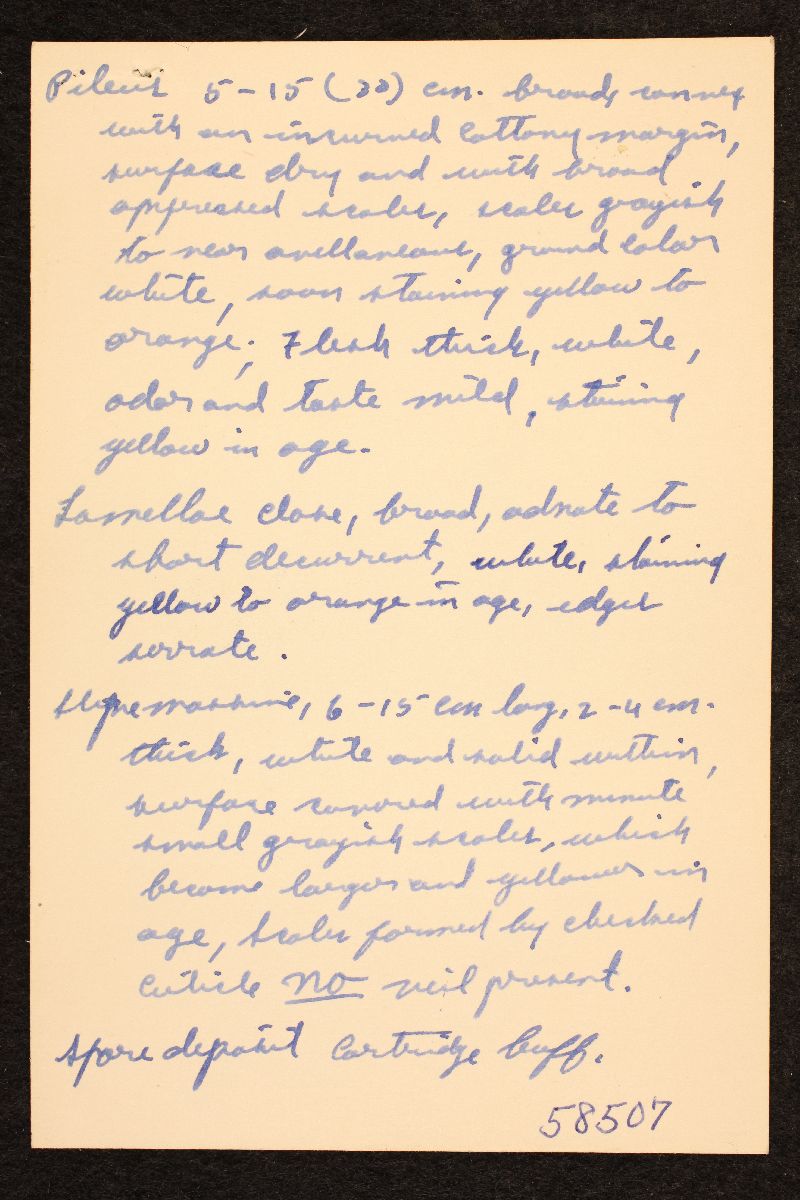 Pileus 5-15 (20) cm. broadly convex
with an incurved cottony margin,
surface dry and with broad
appressed scales, scales grayish
to near avellaneous, ground color
white, soon staining yellow to
orange; Flesh thick, white,
odor and taste mild, staining
yellow in age.
Lamellae close, broad, adnate to
short decurrent, white, staining
yellow to orange in age, edges
serrate.
Stipe massive, 6-15 cm long, 2-4 cm.
thick, white and solid within,
surface covered with minute
small grayish scales, which
become larger and yellower in
age, scales formed by checked
cuticle no veil present.
Spore deposit Cartridge buff.
58507